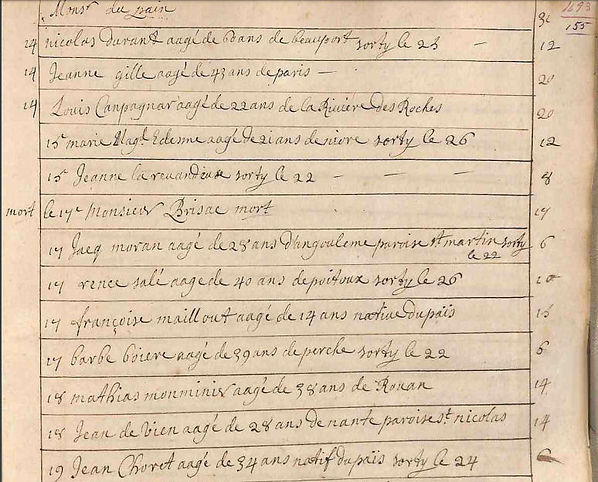 Monsr du pain 31 1693
155
14 nicolas durant aagé de 60 ans de beauport sorty le 25 — 12
14 Jeanne gille aagé de 43 ans de paris — 20
14 Louis Canpagnar aagé de 22 ans de la Rivière des Roches 20
15e marie Magl Edesme aagé de 21 ans de niore sorty le 26 12
15e Jeanne la sorty le 22 — — — 8
mort le 17e monsieur Brisac mort 17
17 Jacq moran aagé de 28 ans d'angouleme paroise st martin sorty le 22 6
17 renee salé aage de 40 ans de poitoux sorty le 26 10
17 françoise maillout aagé de 14 ans native du païs 15
17 barbe boiere aagé de 39 ans de perche sorty le 22 6
18 mathias monminir aagé de 38 ans de Rouan 14
18 Jean de Vien aagé de 28 ans de nante paroise st nicolas 14
19 Jean Choret aagé de 34 ans natif du païs sorty le 24 6